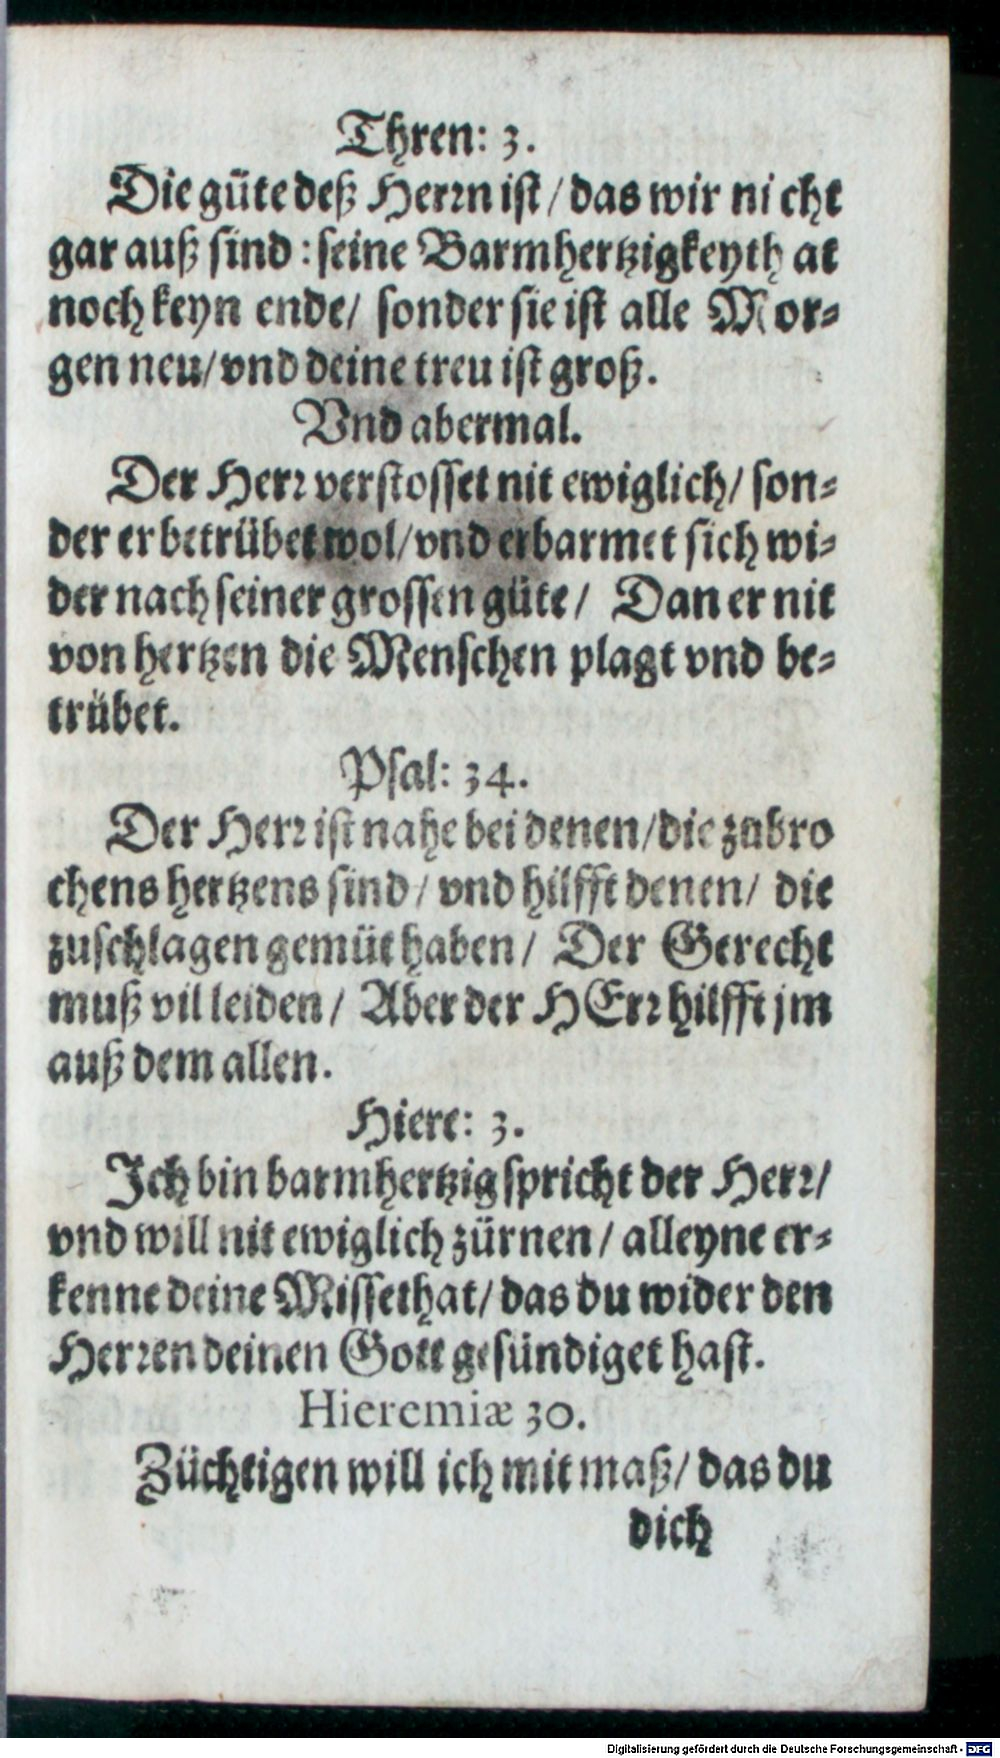 Thren: 3.
Die güte deß Herrn ist / das wir nicht
gar auß sind : seine Barmhertzigkeyth at
noch keyn ende / sonder sie ist alle Mor-
gen neu / vnd deine treu ist groß.
Vnd abermal.
Der Herr verstosset nit ewiglich / son-
der er betrübet wol / vnd erbarmet sich wi-
der nach seiner grossen güte / Dan er nit
von hertzen die Menschen plagt vnd be-
trübet.
Psal: 34.
Der Herr ist nahe bei denen / die zubro
chens hertzens sind / vnd hilfft denen / die
zuschlagen gemüt haben / Der Gerecht
muß vil leiden / Aber der HErr hilfft jm
auß dem allen.
Hiere: 3.
Ich bin barmhertzig spricht der Herr /
vnd will nit ewiglich zürnen / alleyne er-
kenne deine Missethat / das du wider den
Herren deinen Gott gesündiget hast.
Hieremiæ 30.
Züchtigen will ich mit maß / das du
dich
Digitalisierung gefördert durch die Deutsche Forschungsgemeinschaft - DFG